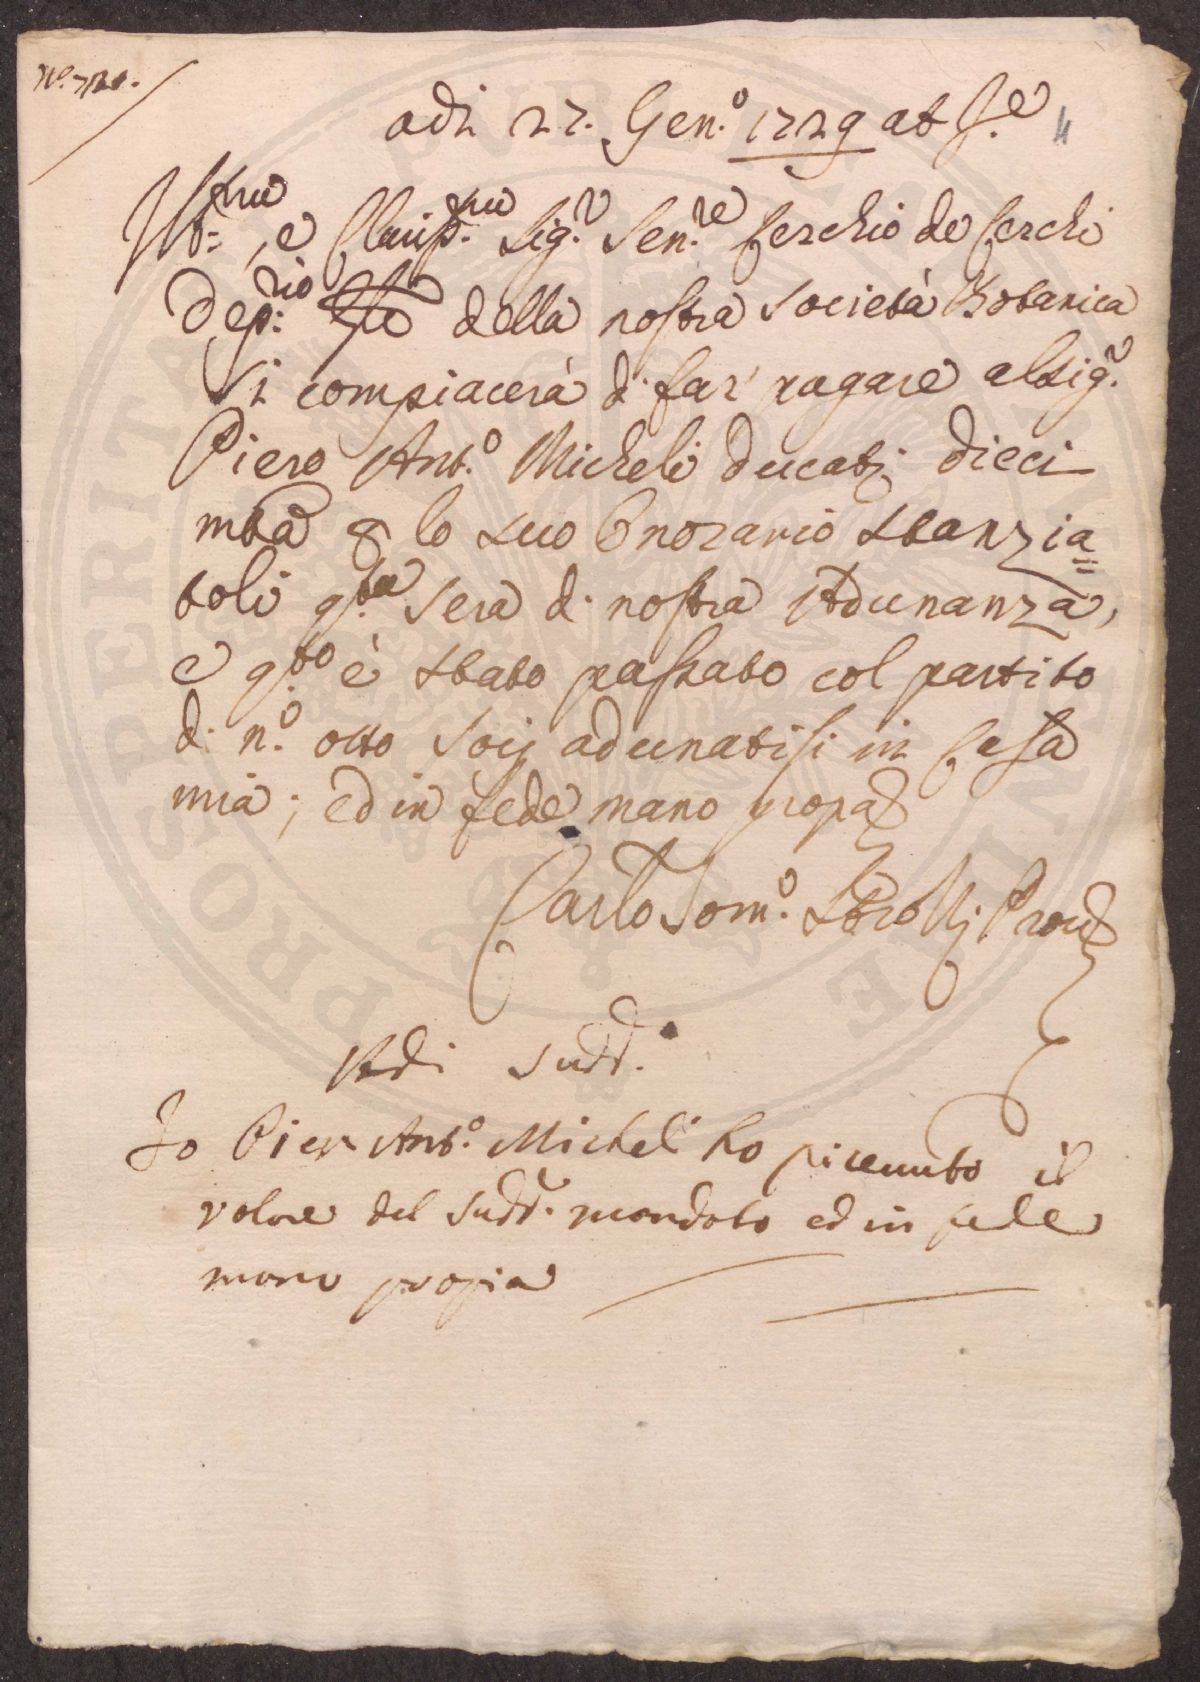 adi 27. Gen.º 1729 ab J.e
Ill.mo, e Clariss.mo Sig.r Sen.re Cerchio de Cerchi
Dep.rio della nostra Società Botanica
Si compiacerà di far pagare al Sig.r
Piero Ant.º Micheli ducati dieci
mta p lo suo Onorario stanzia=
toli q.ta sera di nostra Adunanza,
e q.to è stato passato col partito
di n.º otto Socij adunatisi in Casa
mia; ed in fede mano propa
Carlo Dom.º
Adi Sudd.
Io Pier Ant.º Micheli ho ricevuto il
valore del Sudd.º mandato ed in fede
mano propia
PROSPERITATI PUBLICAE